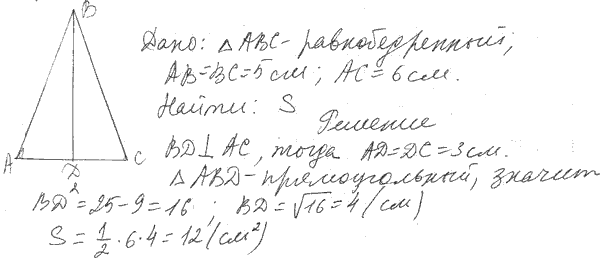 B
Дано: △ABC - равнобедренный;
AB=BC=5см; AC=6см.
Найти: S
Решение
A D C
BD⊥AC, тогда AD=DC=3см.
△ABD-прямоугольный, значит
BD²=25-9=16; BD=√16=4(см)
S=1/2·6·4=12(см²)